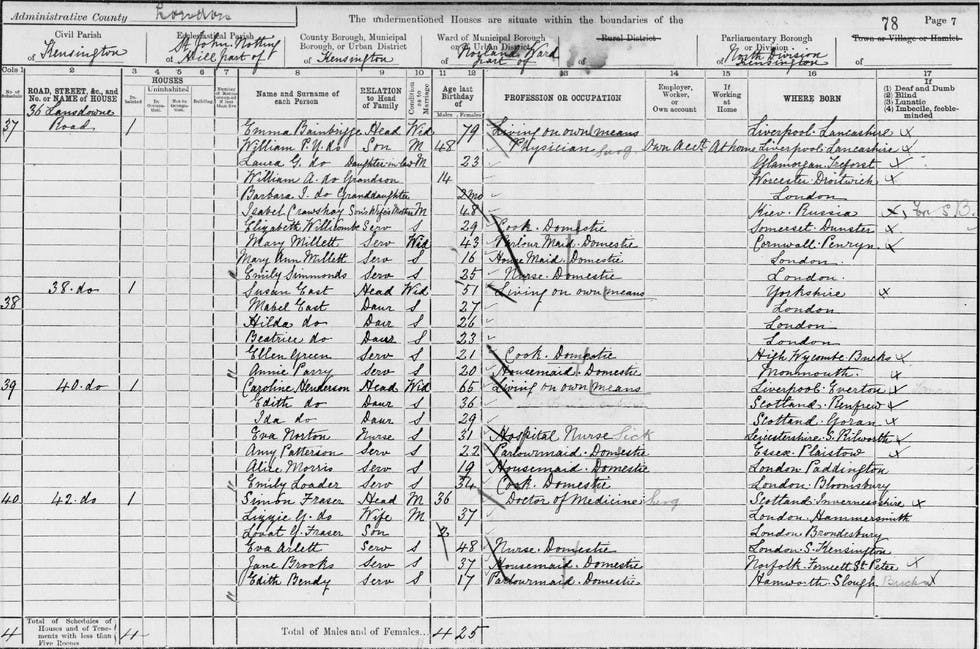 Administrative County London
The undermentioned Houses are situate within the boundaries of the
78 Page 7
Civil Parish of Kensington
Ecclesiastical Parish of St John Notting Hill part of
County Borough, Municipal Borough, or Urban District of Kensington
Ward of Municipal Borough or of Urban District of Norland Ward part of
Rural District
Parliamentary Borough or Division of North Division Kensington
Town or Village or Hamlet
Cols 1 2 3 4 5 6 7 8 9 10 11 12 13 14 15 16 17
No. of Schedule
ROAD, STREET, &c., and No. or NAME of HOUSE
HOUSES
Inhabited
Uninhabited
In Occupation
Not in Occupation
Building
Number of Rooms occupied if less than five
Name and Surname of each Person
RELATION to Head of Family
Condition as to Marriage
Age last Birthday of
Males Females
PROFESSION OR OCCUPATION
Employer, Worker, or Own account
If Working at Home
WHERE BORN
(1) Deaf and Dumb
(2) Blind
(3) Lunatic
(4) Imbecile, feeble-minded
37 36 Lansdowne Road 1 Emma Bainbrigge Head Wid 79 Living on own means Liverpool Lancashire
William P.Y. do Son M 48 Physician Surg Own Acct At home Liverpool Lancashire
Laura G. do Daughter in law M 23 Glamorgan Treforst
William A. do Grandson 14 Worcester Droitwich
Barbara I. do Granddaughter 2 mo London
Isabel Crawshay Son's Wife's Mother M 48 Kiev Russia
Elizabeth Willicombe Serv S 29 Cook Domestic Somerset Dunster
Mary Millett Serv Wid 43 Parlour Maid Domestic Cornwall Penryn
Mary Ann Millett Serv S 16 House Maid Domestic London
Emily Simmonds Serv S 25 Nurse Domestic London
38 38 do 1 Susan East Head Wid 51 Living on own means Yorkshire
Mabel East Daur S 27 London
Hilda do Daur S 26 London
Beatrice do Daur S 23 London
Ellen Green Serv S 21 Cook Domestic High Wycombe Bucks
Annie Parry Serv S 20 Housemaid Domestic Monmouth
39 40 do 1 Caroline Henderson Head Wid 65 Living on own means Liverpool Everton
Edith do Daur S 36 Scotland Renfrew
Ida do Daur S 29 Scotland Govan
Eva Norton Nurse S 31 Hospital Nurse Sick Leicestershire S. Kilworth
Amy Patterson Serv S 22 Parlourmaid Domestic Essex Plaistow
Alice Morris Serv S 19 Housemaid Domestic London Paddington
Emily Loader Serv S 34 Cook Domestic London Bloomsbury
40 42 do 1 Simon Fraser Head M 36 Doctor of Medicine Surg Scotland Invernesshire
Lizzie G. do Wife M 37 London Hammersmith
Lovat G. Fraser Son London Brondesbury
Eva Arlett Serv S 48 Nurse Domestic London S. Kensington
Jane Brooks Serv S 37 Housemaid Domestic Norfolk Forncett St Peter
Edith Bendy Serv S 17 Parlourmaid Domestic Hamworth Slough Bucks
4 Total of Schedules of Houses and of Tenements with less than Five Rooms 4 Total of Males and of Females... 4 25